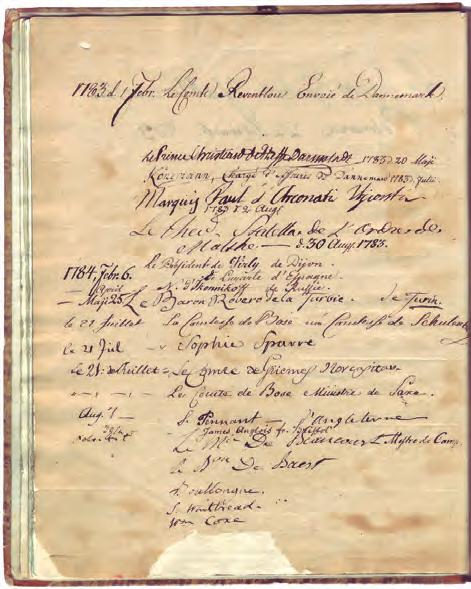 1783 d 1 Febr. Le Comte Reventlou Envoié de Dannemark.
Le Prince Christian de Hesse Darmstadt 1783 20 Maji
Koremann, Chargé d'affaires de Dannemarc 1783. Julii.
Marquis Paul d'Arconati Visconti
1783 d 2 Augt
Le Chev. Statella de L'Ordre de
Malthe — d. 30 Augt. 1783.
1784, Febr. 6. Le Président de Virly de Dijon.
— April de Luzarte d'Espagne.
N. d'Ikonnikoff de Russie.
— Maji 25. Le Baron Rovero de la Turbie. de Turin.
le 21 Juillet La Comtesse de Bose née Comtesse de Schulenb
le 21 Jul — Sophie Sparre
le 21. de Juillet — Le Comte de
Le Comte de Bose Ministre de Saxe.
Aug. 1 — S. Pennant d'Angleterre
James Anglois fr. Bristol
Le De Beaucourt Mestre de Camp
le Bon De Baert
Boullongne.
S. Whitbread.
Wm Coxe